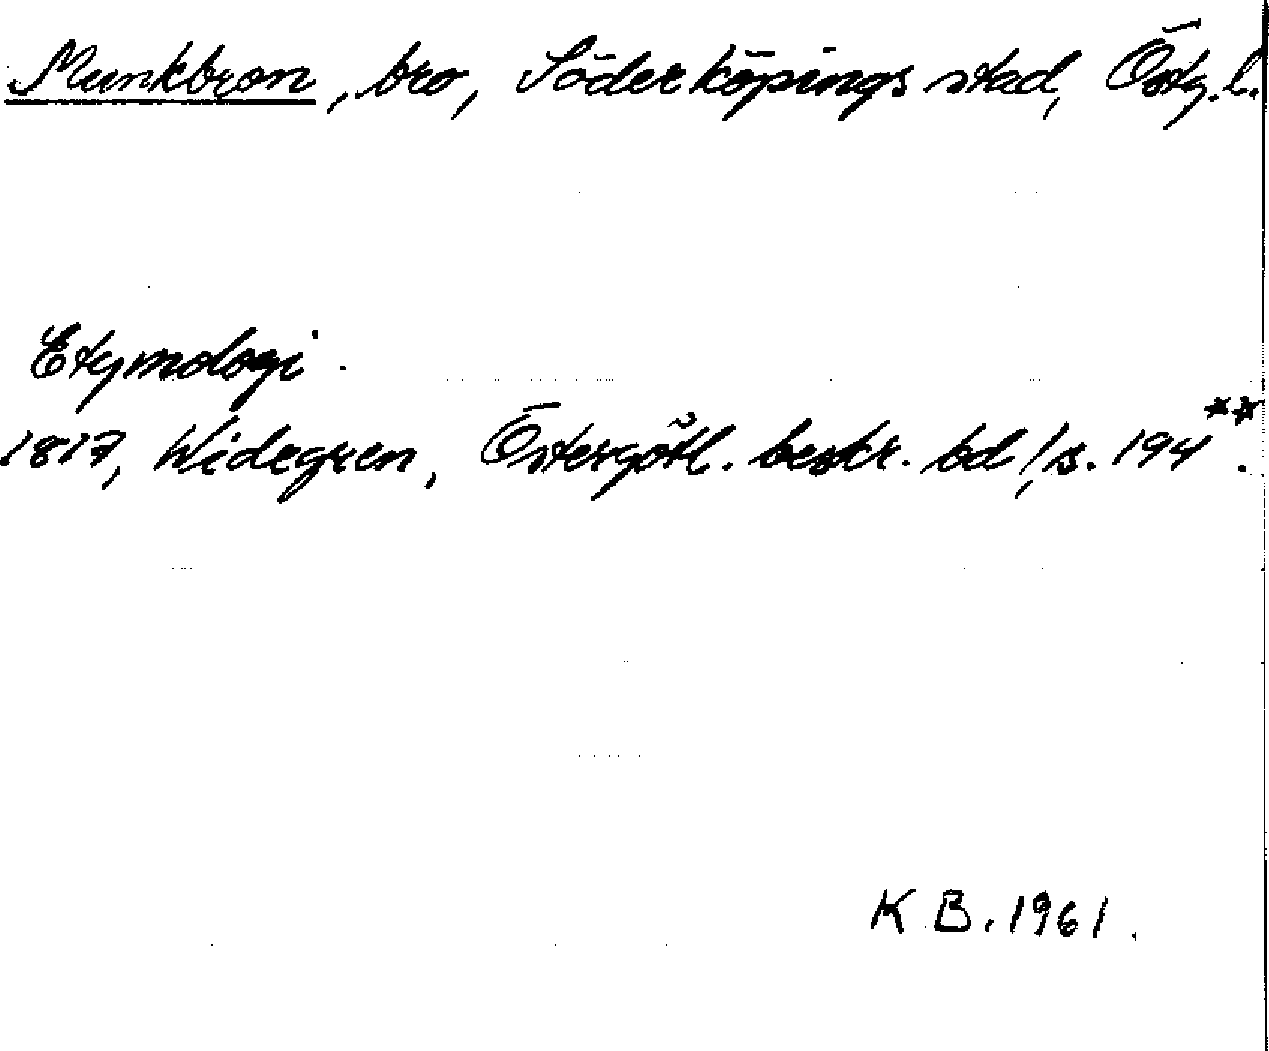 Munkbron, bro, Söderköpings stad, Östg. l.
Etymologi.
1817, Widegren, Östergötl. beskr. bd 1, s. 194**.
K B. 1961.